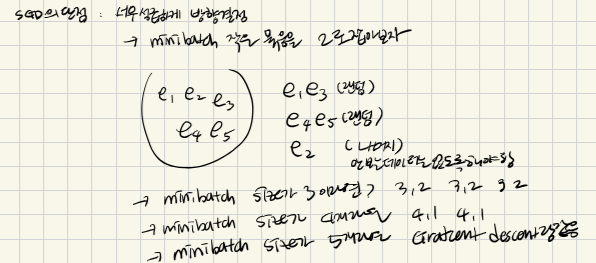 SGD의 단점 : 너무 성급하게 방향결정
→ minibatch 작은 묶음을 2로 잡아보자
e₁ e₂ e₃ e₁e₃ (랜덤)
e₄ e₅ e₄e₅ (랜덤)
e₂ (나머지)
안보는데이터는없도록해야함
→ minibatch size가 3 이라면? 3,2 3,2 3 2
→ minibatch size가 4개라면 4,1 4,1
→ minibatch size가 5개라면 Gradient descent랑같음